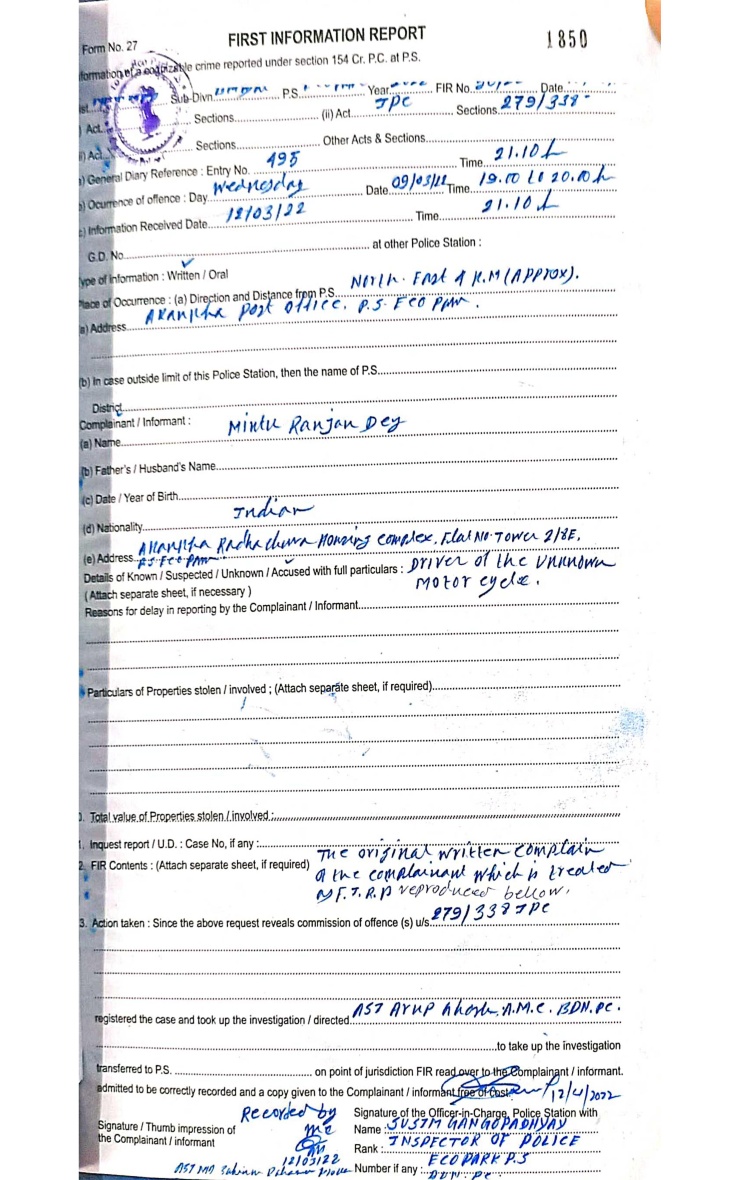 FIRST INFORMATION REPORT
1850
Form No. 27
formation of a cognizable crime reported under section 154 Cr. P.C. at P.S.
Sub-Divn. P.S. Year FIR No. Date
Act Sections (ii) Act IPC Sections 279/338
Act Sections Other Acts & Sections
General Diary Reference : Entry No. 495 Time 21.10 h
Ocurrence of offence : Day Wednesday Date 09/03/22 Time 19.00 to 20.00 h
Information Received Date 12/03/22 Time 21.10 h
G.D. No. at other Police Station :
ype of Information : Written / Oral
lace of Occurrence : (a) Direction and Distance from P.S. North. East 4 K.M (APProx).
a) Address Akanksha Post Office. P.S. Eco Park.
(b) In case outside limit of this Police Station, then the name of P.S.
District
Complainant / Informant :
(a) Name Mintu Ranjan Dey
(b) Father's / Husband's Name
(c) Date / Year of Birth
(d) Nationality Indian
(e) Address Akanksha Radhachura Housing complex. Flat No. Tower 2/8E,
P.S Eco Park
Details of Known / Suspected / Unknown / Accused with full particulars : Driver of the Unknown
(Attach separate sheet, if necessary ) Motor cycle.
Reasons for delay in reporting by the Complainant / Informant
Particulars of Properties stolen / involved ; (Attach separate sheet, if required)
Total value of Properties stolen / involved :
1. Inquest report / U.D. : Case No, if any :
2. FIR Contents : (Attach separate sheet, if required) The original written complain
of the complainant which is treated
as F.I.R is reproduced bellow.
3. Action taken : Since the above request reveals commission of offence (s) u/s. 279/338 IPC
registered the case and took up the investigation / directed ASI Arup Ghosh. A.M.C. BDN.PC.
to take up the investigation
transferred to P.S. on point of jurisdiction FIR read over to the Complainant / informant.
admitted to be correctly recorded and a copy given to the Complainant / informant free of Cost. 12/4/2022
Recorded by
me
12/03/22
ASI MD
Signature / Thumb impression of
the Complainant / informant
Signature of the Officer-in-Charge, Police Station with
Name : SUSIM GANGOPADHYAY
Rank : INSPECTOR OF POLICE
ECOPARK P.S
Number if any : BDN. PC.